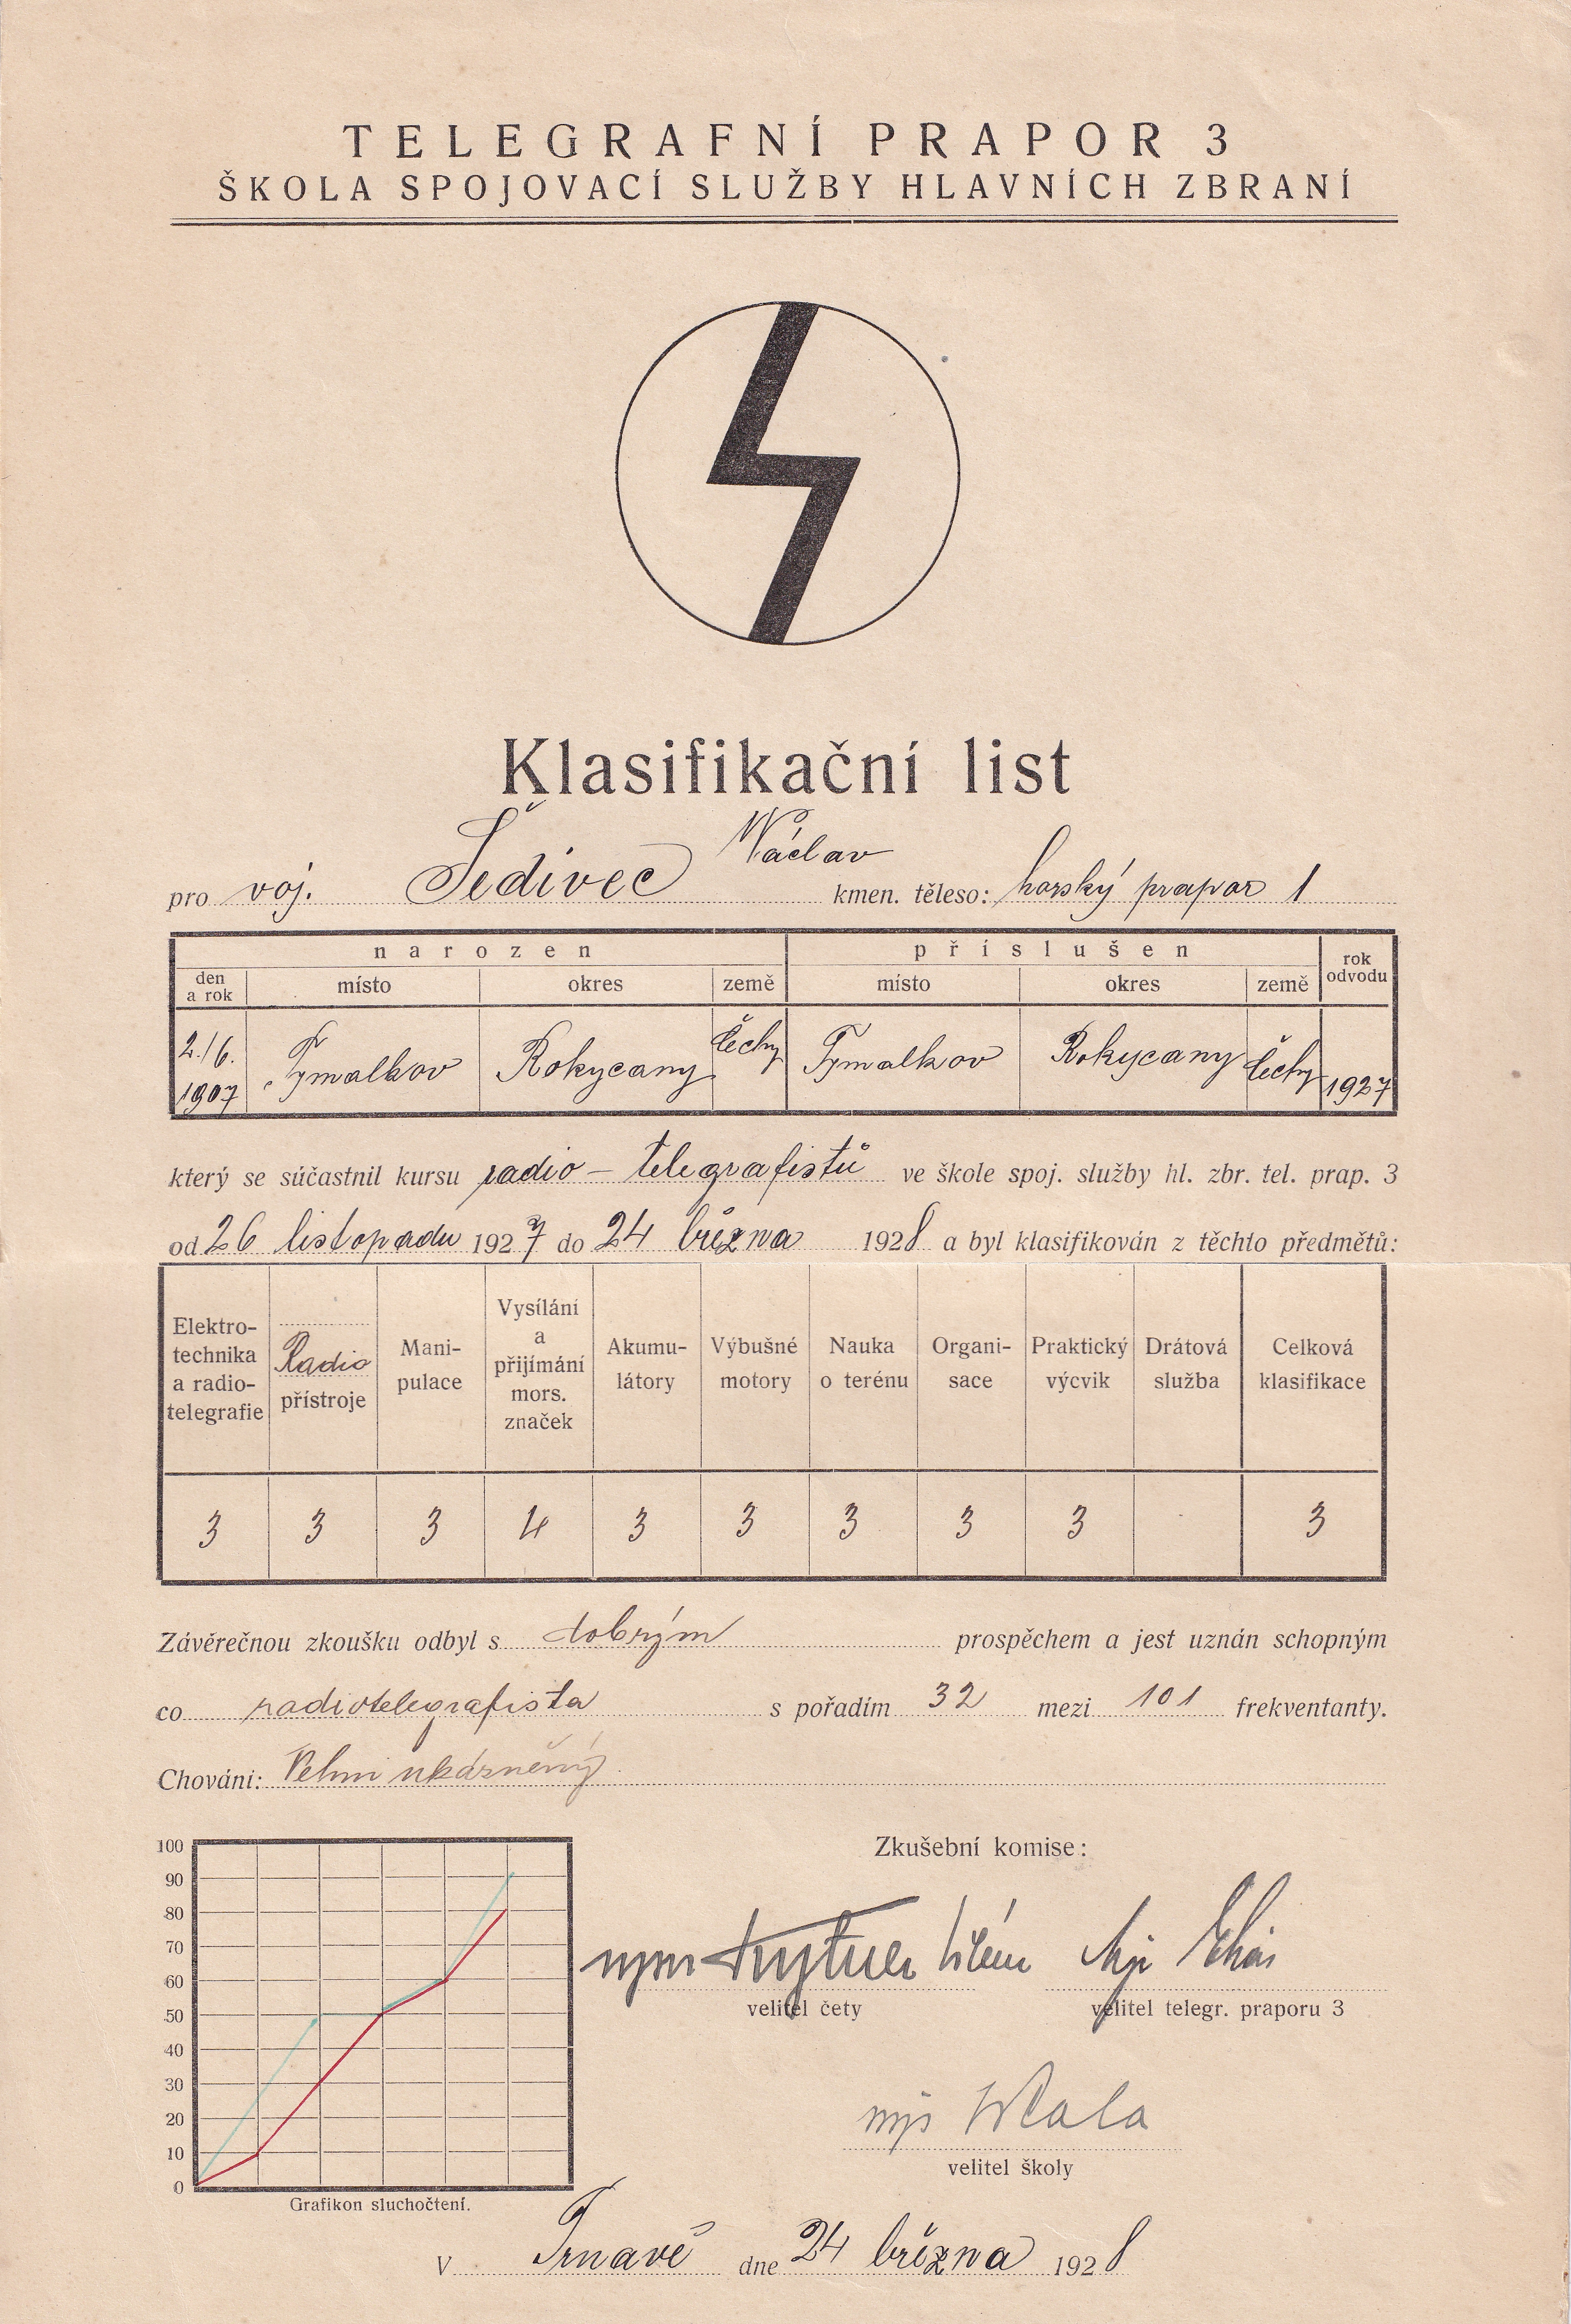 TELEGRAFNÍ PRAPOR 3
ŠKOLA SPOJOVACÍ SLUŽBY HLAVNÍCH ZBRANÍ
Klasifikační list
pro voj. Šedivec Václav kmen. těleso: horský prapor 1
narozen příslušen rok odvodu
den a rok místo okres země místo okres země
2./6. 1907 Tymalkov Rokycany Čechy Tymalkov Rokycany Čechy 1927
který se súčastnil kursu radio-telegrafistů ve škole spoj. služby hl. zbr. tel. prap. 3
od 26 listopadu 1927 do 24 března 1928 a byl klasifikován z těchto předmětů:
Elektro-technika a radio-telegrafie Radio přístroje Mani-pulace Vysílání a přijímání mors. značek Akumu-látory Výbušné motory Nauka o terénu Organi-sace Praktický výcvik Drátová služba Celková klasifikace
3 3 3 4 3 3 3 3 3 3
Závěrečnou zkoušku odbyl s dobrým prospěchem a jest uznán schopným
co radiotelegrafista s pořadím 32 mezi 101 frekventanty.
Chováni: Velmi ukázněný
Zkušební komise:
100
90
80
70
60
50
40
30
20
10
0
Grafikon sluchočtení.
velitel čety velitel telegr. praporu 3
velitel školy
V Trnavě dne 24 března 1928